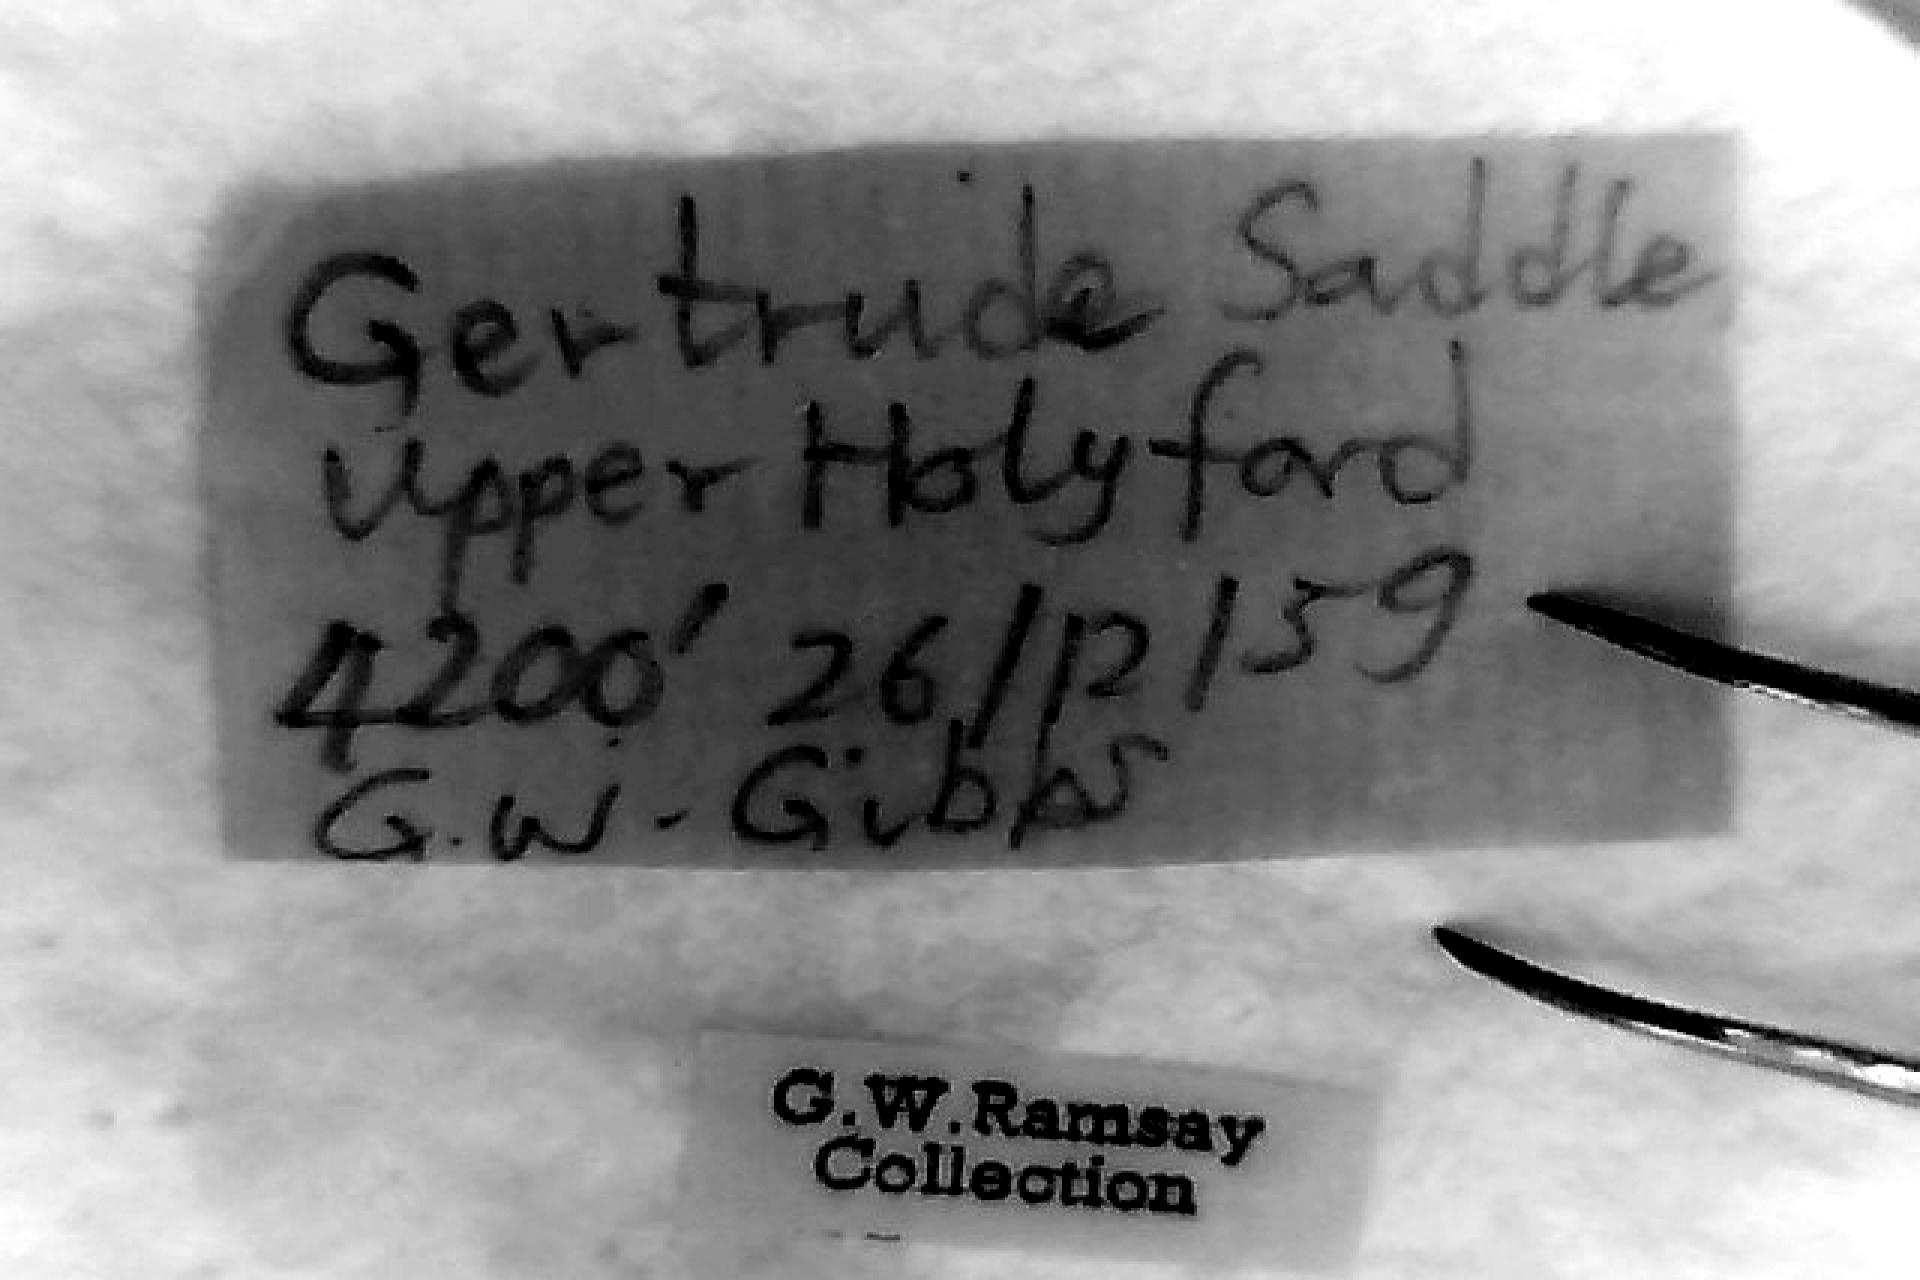 Gertrude Saddle
Upper Holyford
4200' 26/12/59
G.W. Gibbs
G.W.Ramsay
Collection